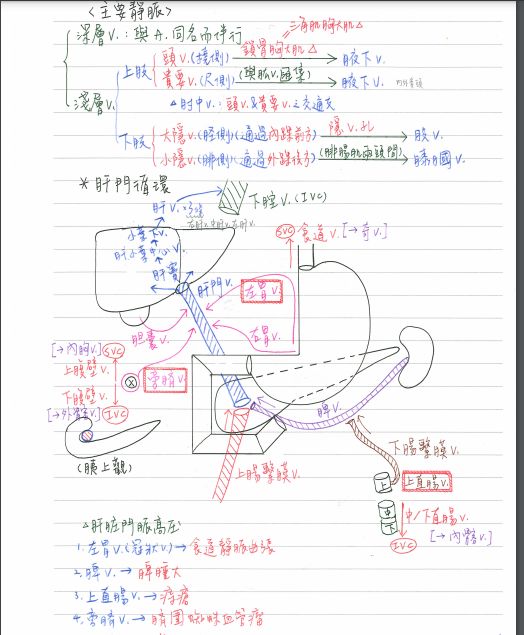 <主要静脈>
深層V.：與A.同名而伴行
三角肌胸大肌△
淺層V.
上肢
頭V.(橈側) 鎖骨胸大肌△ → 腋下V.
貴要V.(尺側) (與肱V.匯集) → 腋下V.
△肘中V.：頭V.&貴要V.之交通支
下肢
大隱V.(脛側)(通過內踝前方) 隱V.孔 → 股V.
小隱V.(腓側)(通過外踝後方) (腓腸肌兩頭間) → 膕V.
*肝門循環
肝V.
下腔V.(IVC)
小葉下V.
肝小葉中心V.
肝竇
肝門V.
SVC 食道V. [→奇V.]
左胃V.
右胃V.
膽囊V.
[→內胸V.] SVC
上腹壁V.
下腹壁V.
[→外髂V.] IVC
旁臍V.
脾V.
(胰上觀)
上腸繫膜V.
下腸繫膜V.
上 上直腸V.
中
下
中/下直腸V.
[→內髂V.]
IVC
△肝脏門脈高压
1.左胃V.(冠狀V.)→食道静脈曲張
2.脾V.→脾腫大
3.上直腸V.→痔瘡
4.旁臍V.→臍圍蜘蛛血管瘤